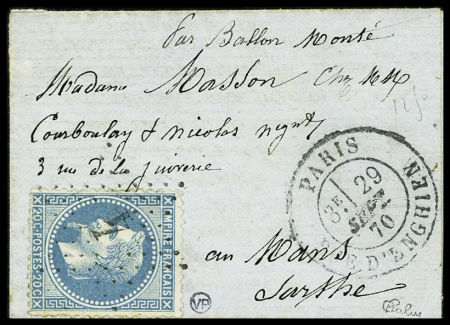 Par Ballon Monté
Madame Masson Chez MM
Courboulay & Nicolas négts
3 rue de la Juiverie
au Mans
Sarthe
PARIS
R. D'ENGHIEN
3E
29
SEPT
70
EMPIRE FRANÇAIS
20C POSTES 20C
VP